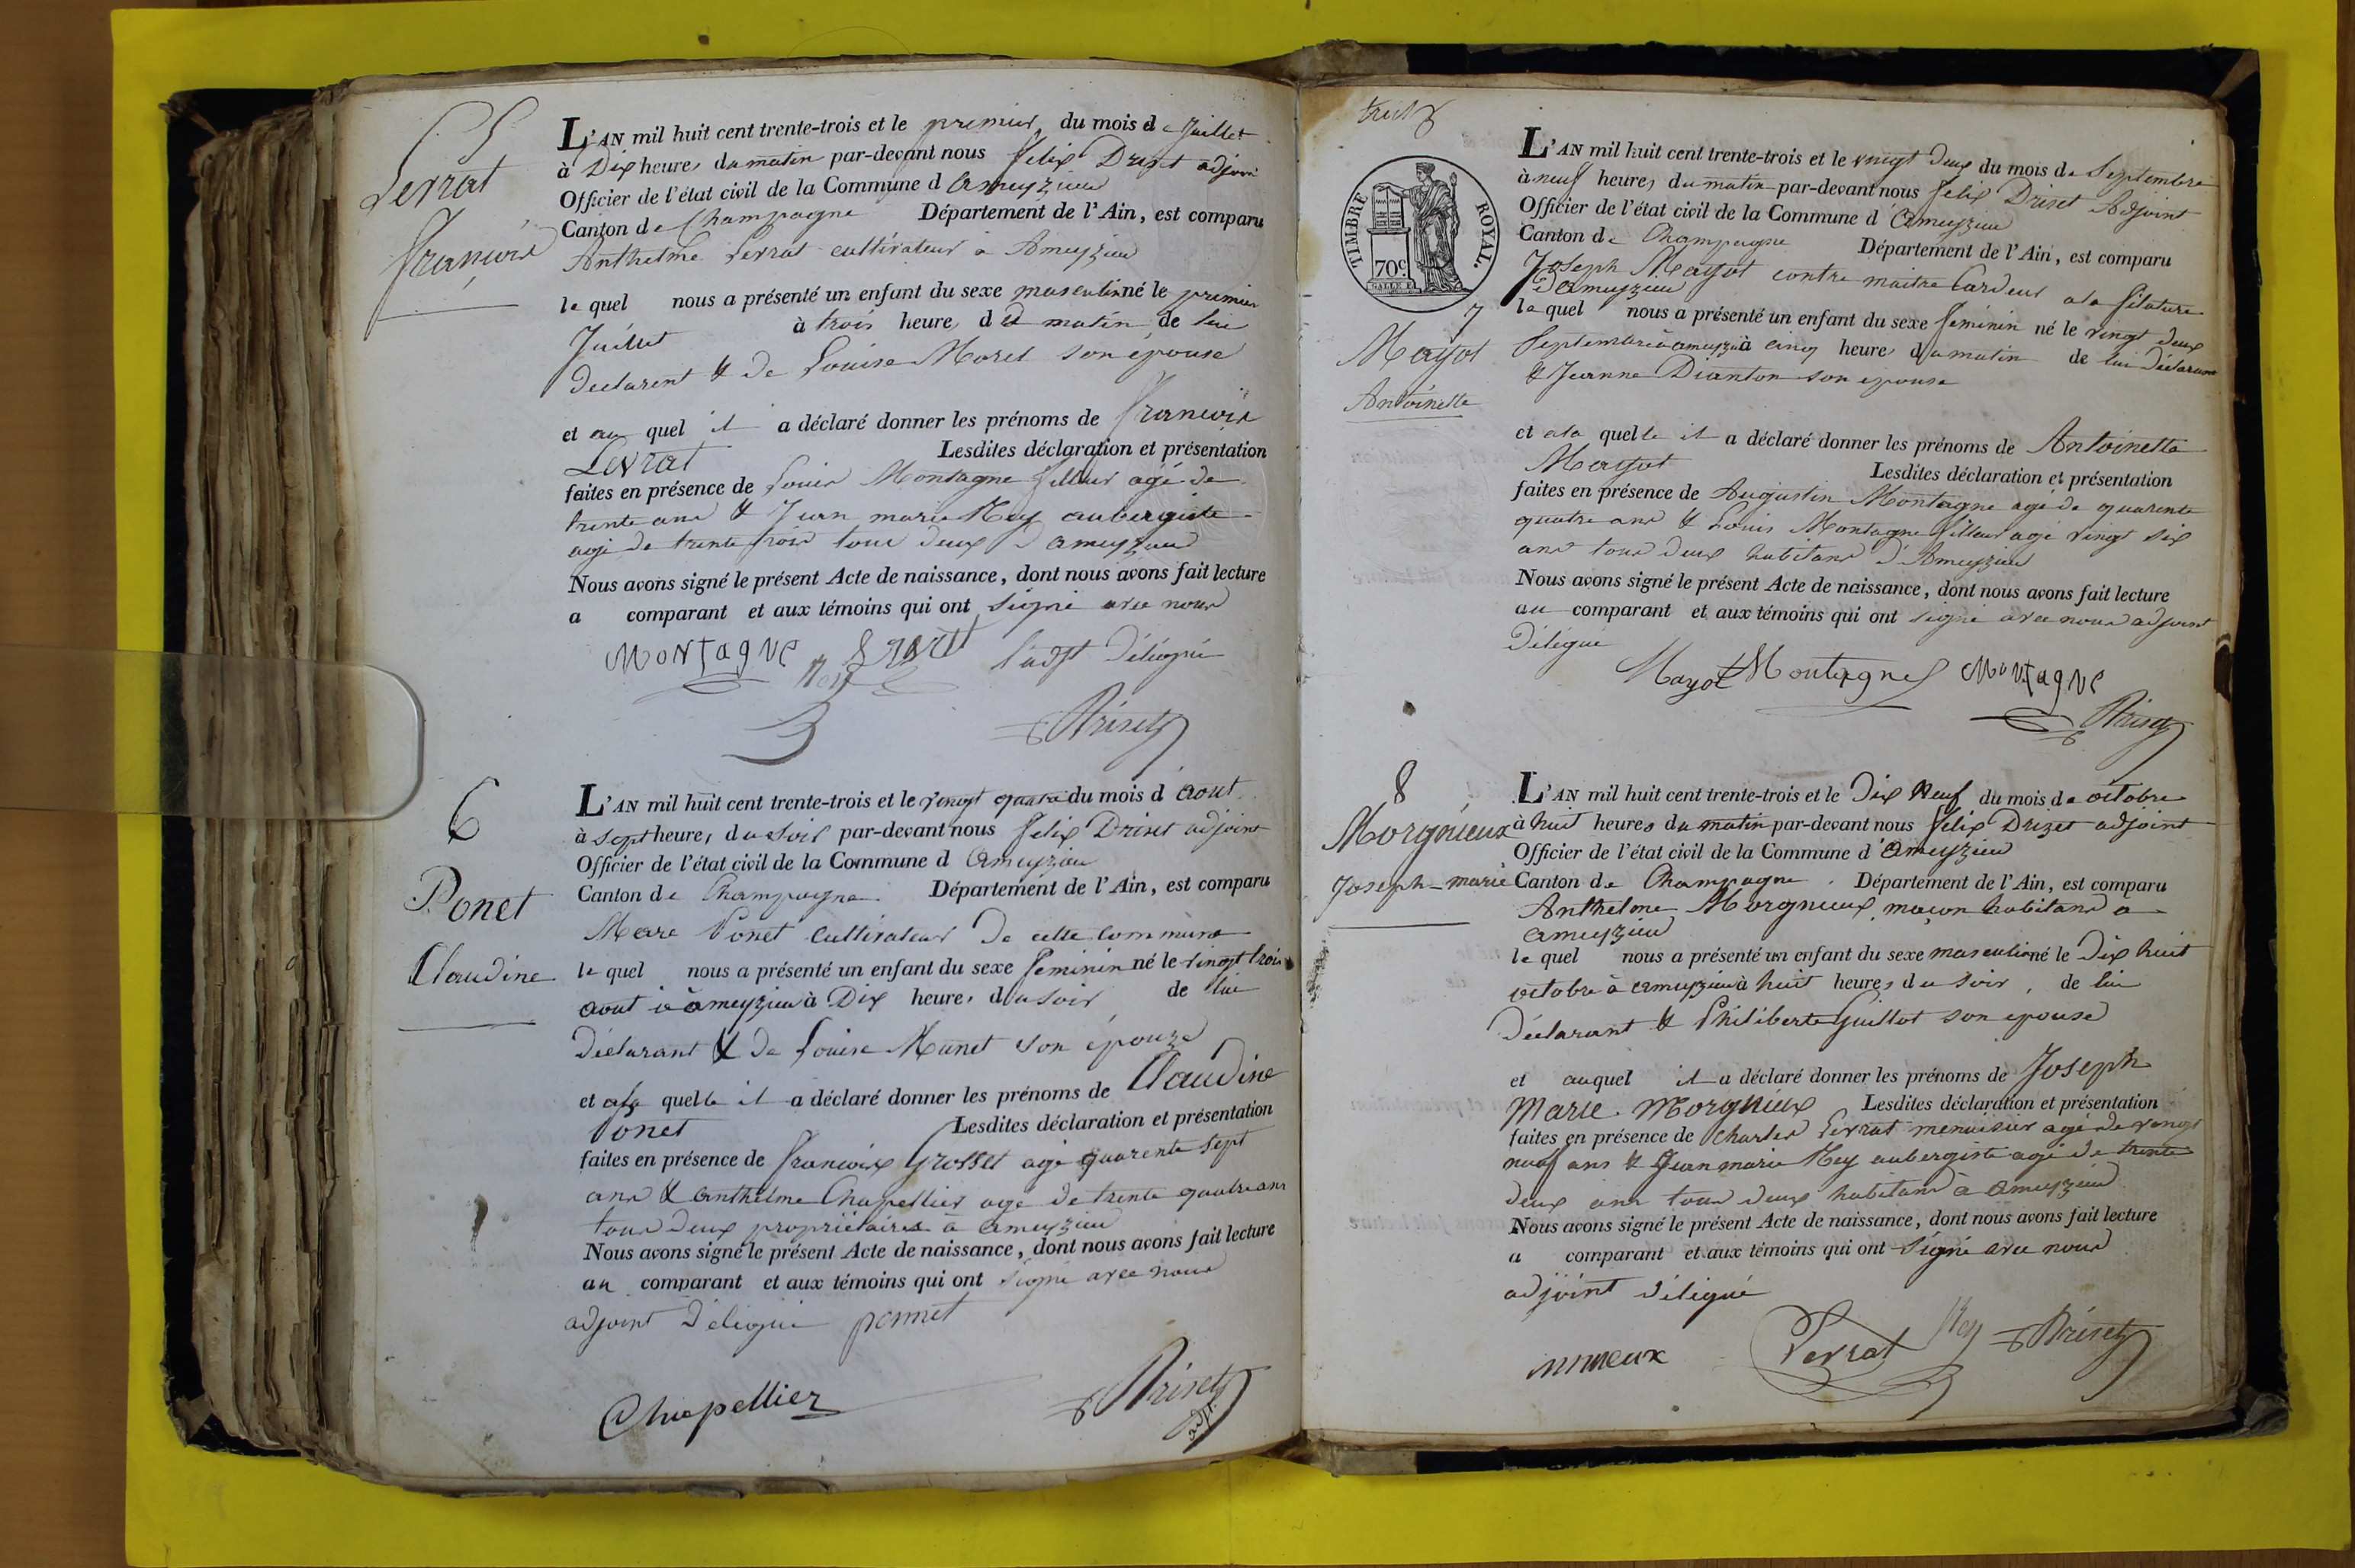 5
Levrat
François
L'AN mil huit cent trente-trois et le premier du mois de Juillet
à Dix heures du matin par-devant nous felix Driset adjoin
Officier de l'état civil de la Commune d Ameyzieu
Canton de Champagne Département de l'Ain, est comparu
Anthelme Levrat cultivateur a Ameyzieu
le quel nous a présenté un enfant du sexe masculin né le premier
Juillet à trois heures du matin de lui
declarent & de Louise Moret son épouse
et au quel il a déclaré donner les prénoms de François
Levrat Lesdites déclaration et présentation
faites en présence de Louis Montagne filleur agé de
trente ans & Jean marie Rey aubergiste
agé de trente trois tous deux d ameyzieu
Nous avons signé le présent Acte de naissance, dont nous avons fait lecture
a comparant et aux témoins qui ont signé avec nous
l'adjt délégué
Montagne Rey
Driset
6
Ponet
Claudine
L'AN mil huit cent trente-trois et le vingt quatre du mois d aout
à sept heures du soir par-devant nous felix Driset adjoint
Officier de l'état civil de la Commune d Ameyzieu
Canton de Champagne Département de l'Ain, est comparu
Marc Ponet cultivateur de cette commune
le quel nous a présenté un enfant du sexe feminin né le vingt trois
aout à ameyzieu à Dix heures du soir de lui
déclarant & de Louise Munet son épouze
et a la quelle il a déclaré donner les prénoms de Claudine
Ponet Lesdites déclaration et présentation
faites en présence de francoix Grosset agé quarente sept
ans & anthelme Chapellier age de trente quatre ans
tous deux propriétaires à ameyzieu
Nous avons signé le présent Acte de naissance, dont nous avons fait lecture
au comparant et aux témoins qui ont signé avec nous
adjoint délégué ponnet
Chapellier Driset
adjt.
TIMBRE ROYAL.
70c
7
Mayot
Antoinette
L'AN mil huit cent trente-trois et le vingt deux du mois de Septembre
à neuf heures du matin par-devant nous felix Driset Adjoint
Officier de l'état civil de la Commune d Ameyzieu
Canton de Champagne Département de l'Ain, est comparu
Joseph Mayot contre maitre Cardeur a la filature
d'ameyzieu
le quel nous a présenté un enfant du sexe feminin né le vingt deux
Septembre à ameyzieu à cinq heures du matin de lui déclarant
& Jeanne Dianton son epouse
et a la quelle il a déclaré donner les prénoms de Antoinette
Mayot Lesdites déclaration et présentation
faites en présence de Augustin Montagne agé de quarente
quatre ans & Louis Montagne filleur agé vingt six
ans tous deux habitans d'Ameyzieu
Nous avons signé le présent Acte de naissance, dont nous avons fait lecture
au comparant et aux témoins qui ont signé avec nous adjoint
délégué
Mayot Montagne Montagne
Driset
8
Morgnieux
Joseph-marie
L'AN mil huit cent trente-trois et le Dix Neuf du mois de octobre
à huit heures du matin par-devant nous félix Drizet adjoint
Officier de l'état civil de la Commune d'Ameyzieu
Canton de Champagne. Département de l'Ain, est comparu
Anthelme Morgnieux maçon habitans à
ameyzieu
le quel nous a présenté un enfant du sexe masculin né le Dix huit
octobre à ameyzieu à huit heures du soir, de lui
déclarant & Philiberte Guillot son epouse
et auquel il a déclaré donner les prénoms de Joseph
Marie. Morgnieux Lesdites déclaration et présentation
faites en présence de Charles Levrat menuisier agé de vingt
neuf ans & Jean marie Rey aubergiste agé de trente
deux ans tous deux habitans à ameyzieu
Nous avons signé le présent Acte de naissance, dont nous avons fait lecture
a comparant et aux témoins qui ont signé avec nous
adjoint délégué
Levrat Rey Driset